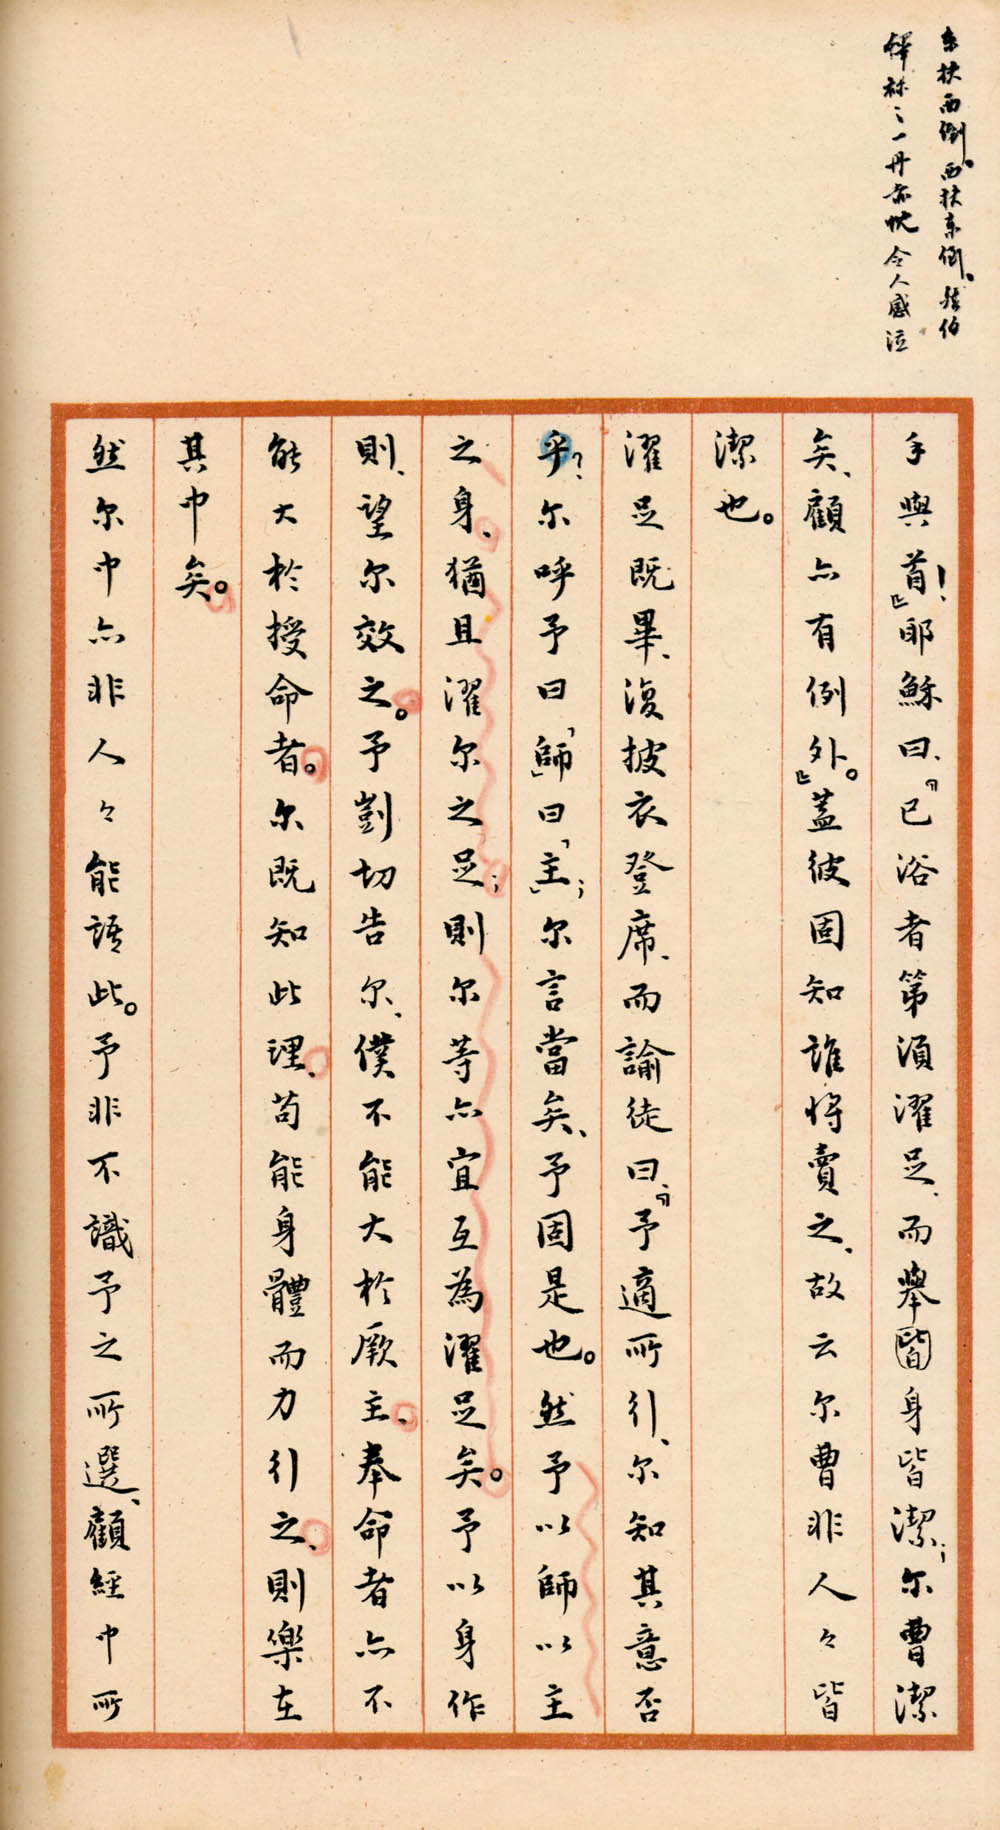 東扶西倒。西扶東倒。然伯
鐸祿之一片赤忱令人感泣
手與首！』耶穌曰、『已浴者第須濯足、而舉皆身皆潔；尔曹潔
矣、顧亦有例外。』蓋彼固知誰將賣之、故云尔曹非人々皆
潔也。
濯足既畢、復披衣登席、而諭徒曰、『予適所行、尔知其意否
乎？尔呼予曰「師」曰「主」；尔言當矣、予固是也。然予以師以主
之身、猶且濯尔之足；則尔等亦宜互為濯足矣。予以身作
則、望尔效之。予剴切告尔、僕不能大於厥主、奉命者亦不
能大於授命者。尔既知此理、苟能身體而力行之、則樂在
其中矣。
然尔中亦非人々能語此。予非不識予之所選、顧經中所